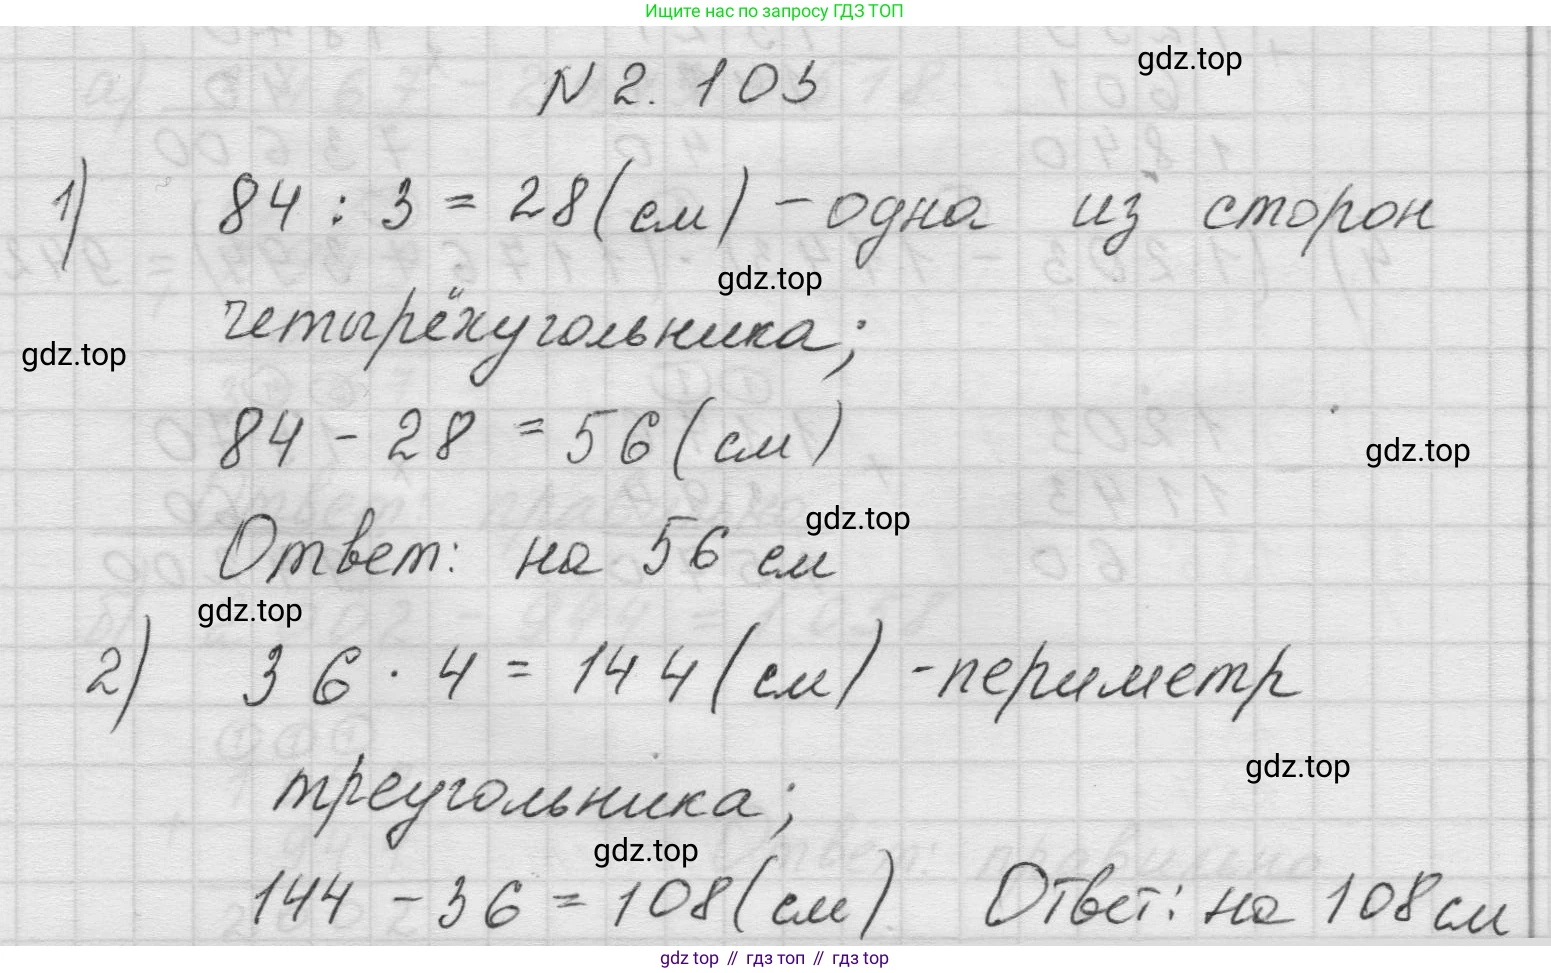 Ищите нас по запросу ГДЗ ТОП
gdz.top
N 2. 103
1) 84 : 3 = 28 (см) - одна из сторон
gdz.top
четырёхугольника;
gdz.top
84 - 28 = 56 (см)
gdz.top
gdz.top
Ответ: на 56 см
gdz.top
2) 36 · 4 = 144 (см) - периметр
gdz.top
треугольника;
gdz.top
144 - 36 = 108 (см) Ответ: на 108 см
gdz top // гдз топ // гдз top